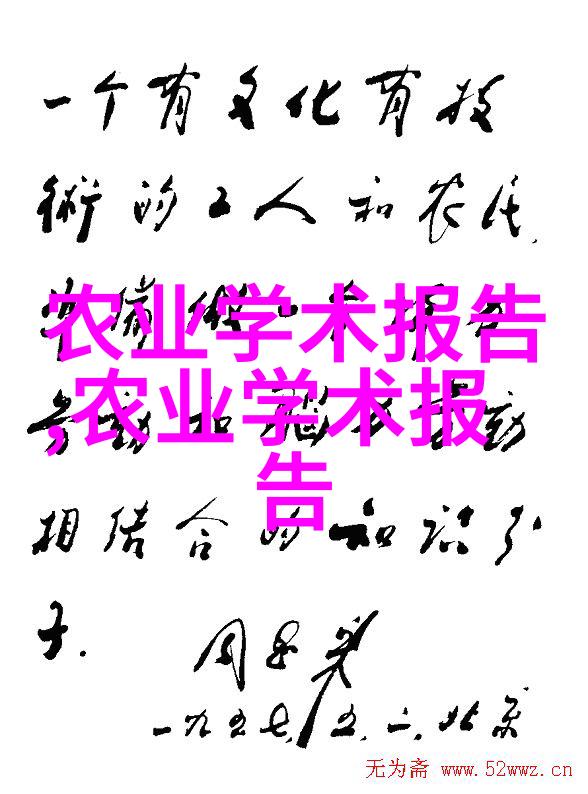 一个有文化有技
術的工人和农民,
農业学术报告
,农业学术报
告
劳動和腦力劳動
相结合的知识分
子.
周恩来
一九五七,五,二,北京
无为斋 www.52wwz.cn